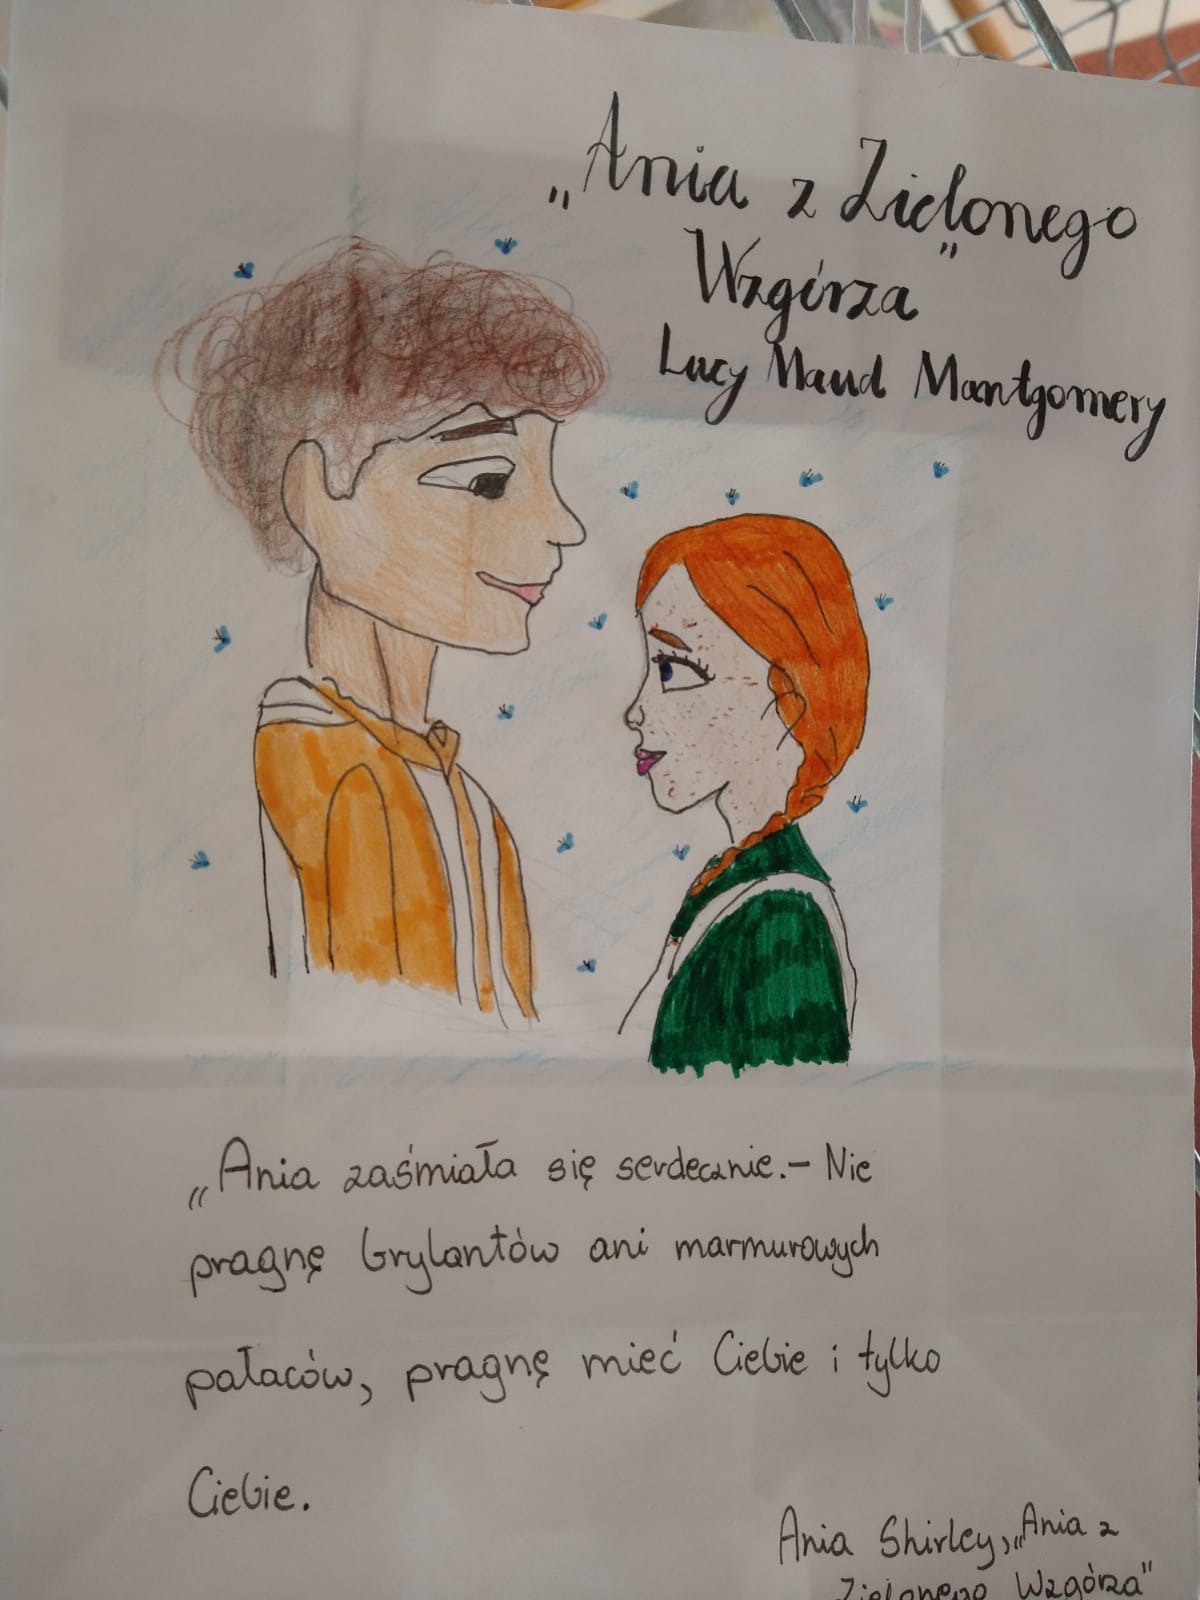 „Ania z Zielonego
Wzgórza"
Lucy Maud Montgomery
„Ania zaśmiała się serdecznie.- Nie
pragnę brylantów ani marmurowych
pałaców, pragnę mieć Ciebie i tylko
Ciebie.
Ania Shirley, „Ania z
Zielonego Wzgórza"